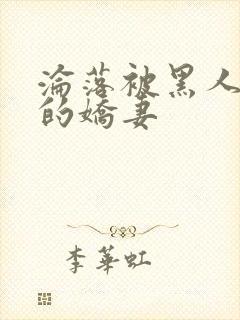 淪落被黑人
的嬌妻
李華虹